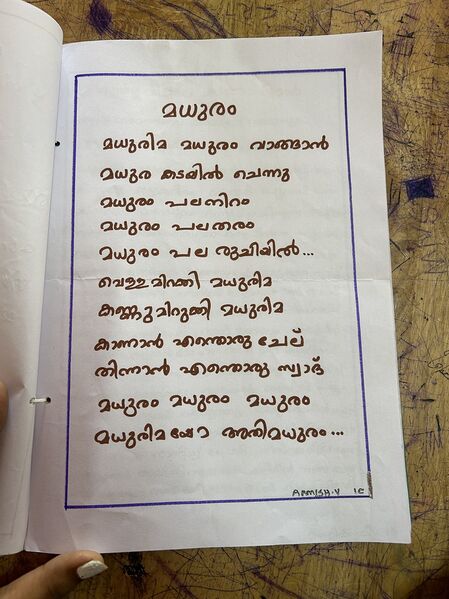 മധുരം
മധുരിമ മധുരം വാങ്ങാൻ
മധുര കടയിൽ ചെന്നു
മധുരം പലനിറം
മധുരം പലതരം
മധുരം പല രുചിയിൽ...
വെള്ളമിറക്കി മധുരിമ
കണ്ണുമിറുക്കി മധുരിമ
കാണാൻ എന്തൊരു ചേല്
തിന്നാൻ എന്തൊരു സ്വാദ്
മധുരം മധുരം മധുരം
അതിമധുരം...